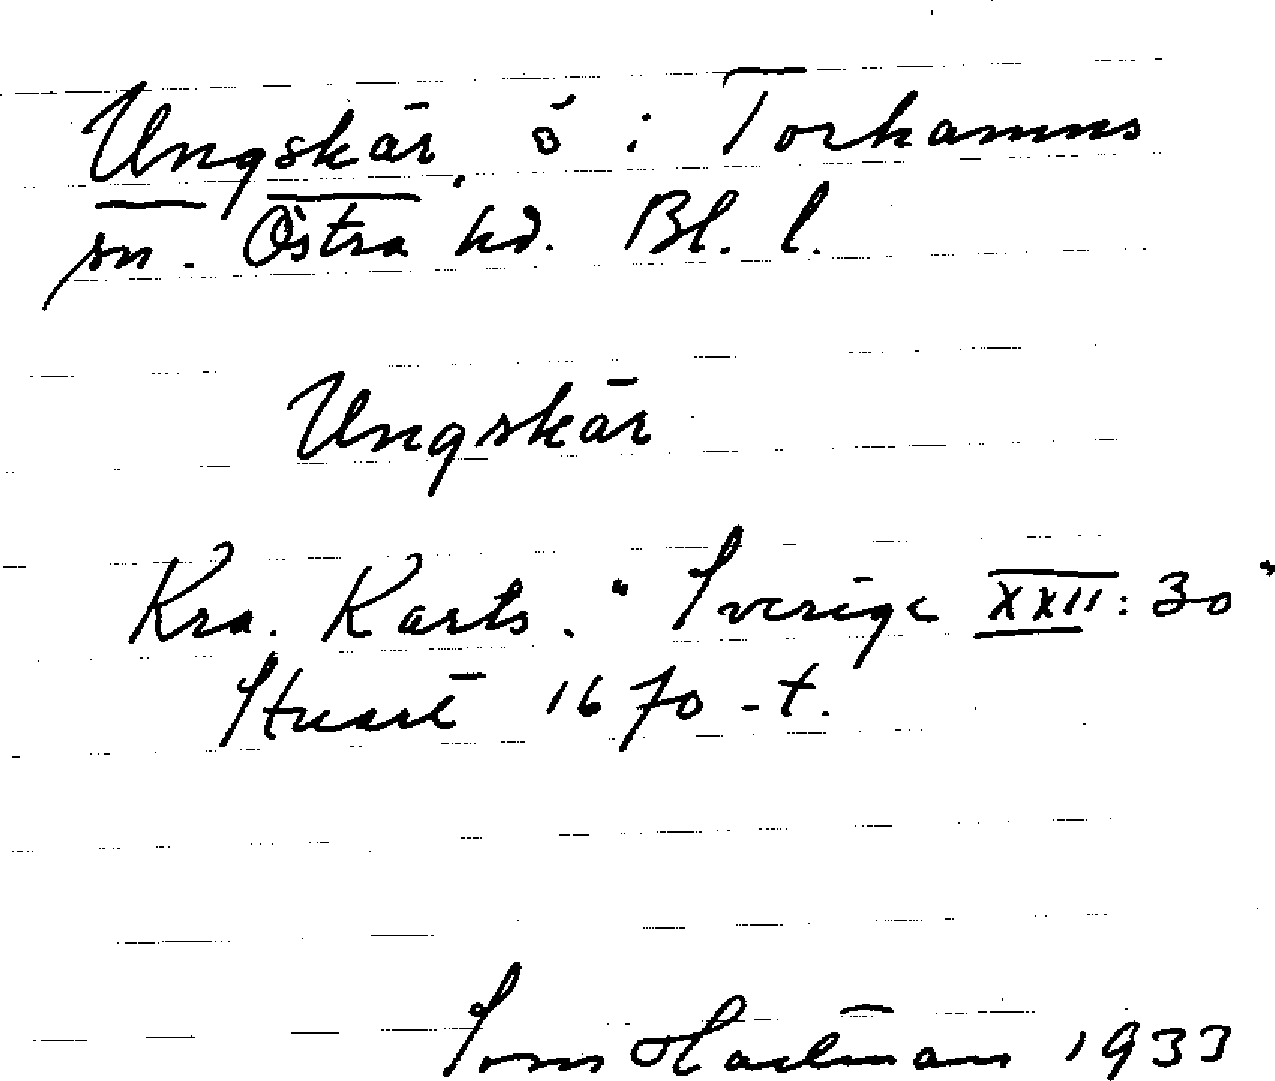 Ungskär, ö i Torhamns
sn. Östra hd. Bl. l.
Ungskär
Kra. Karts. "Sverige XXII: 30"
Stuart 1670-t.
Hartman 1933